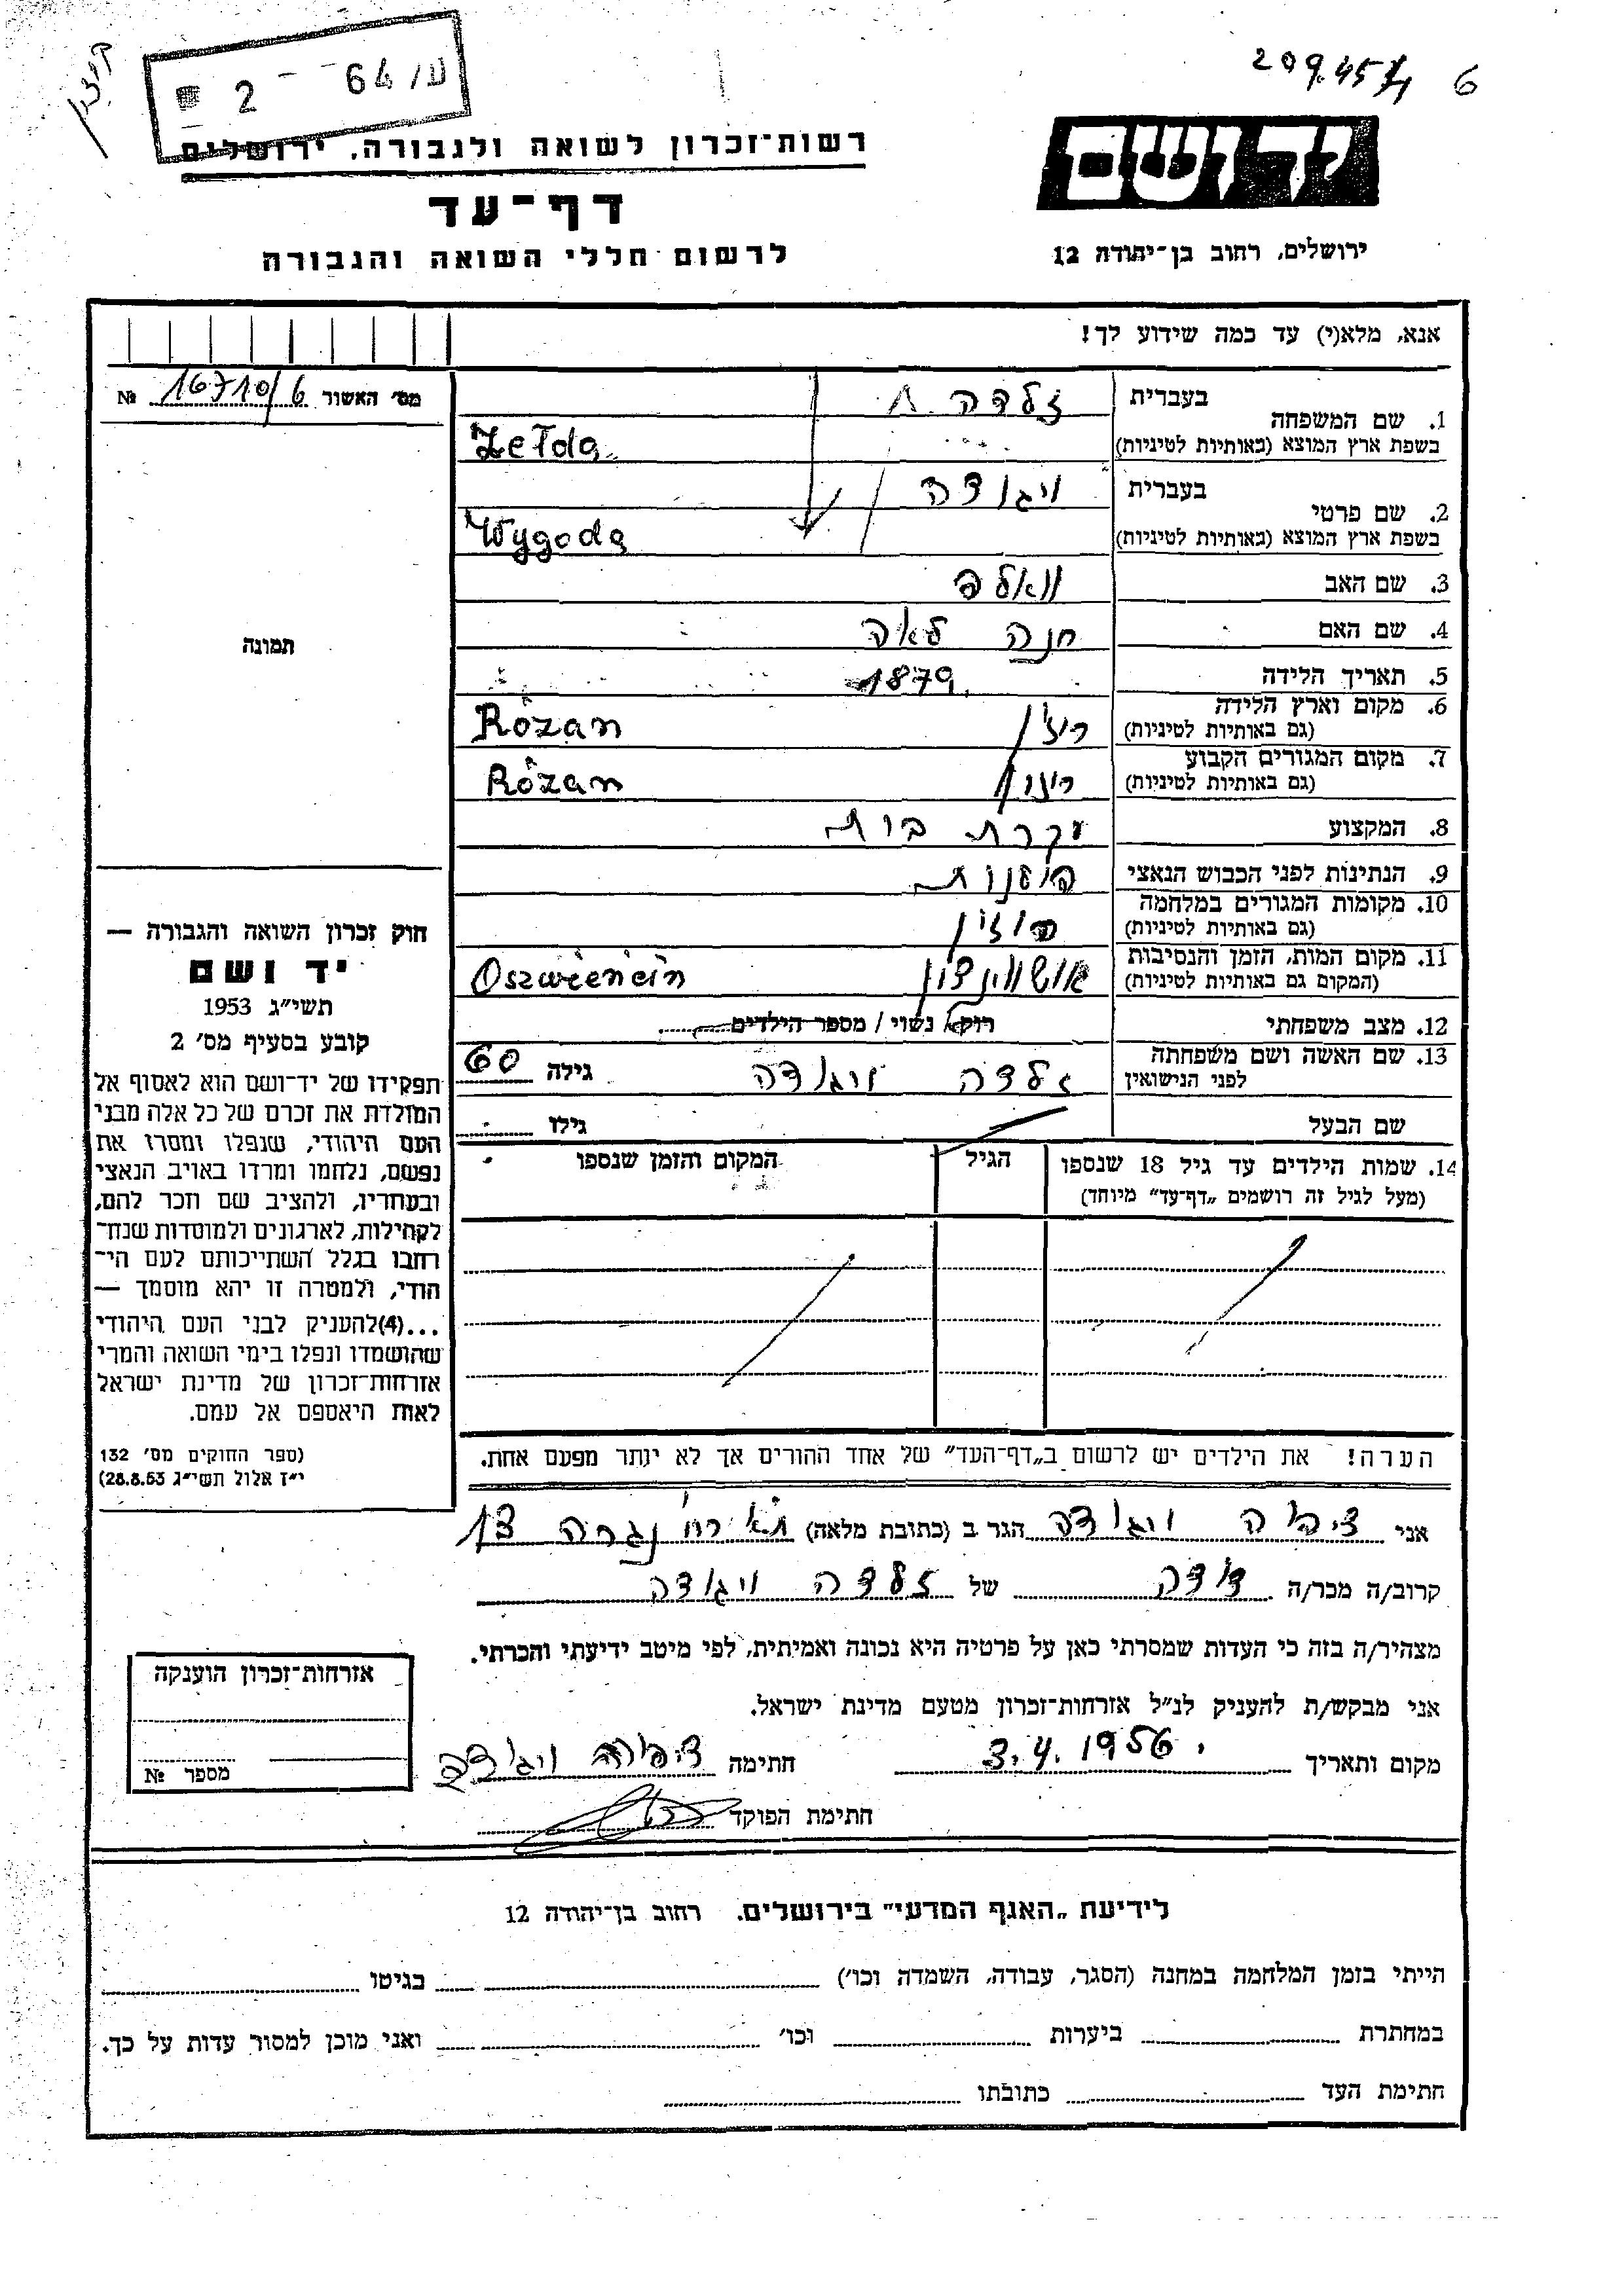 209.45/4 6
2 - 64/ע
יד ושם
רשות־זכרון לשואה ולגבורה, ירושלים
דף־עד
לרשום חללי השואה והגבורה
ירושלים, רחוב בן־יהודה 12
אנא, מלא(י) עד כמה שידוע לך!
מס׳ האשור № 16710/6
תמונה
1. שם המשפחה
בעברית זלדה
בשפת ארץ המוצא (באותיות לטיניות) Zełda
2. שם פרטי
בעברית ויגודה
בשפת ארץ המוצא (באותיות לטיניות) Wygoda
3. שם האב וואלף
4. שם האם חנה לאה
5. תאריך הלידה 1879
6. מקום וארץ הלידה
(גם באותיות לטיניות) רוז'ן Rózan
7. מקום המגורים הקבוע
(גם באותיות לטיניות) רוז'ן Rózan
8. המקצוע עקרת בית
9. הנתינות לפני הכבוש הנאצי פולנית
10. מקומות המגורים במלחמה
(גם באותיות לטיניות)
11. מקום המות, הזמן והנסיבות
(המקום גם באותיות לטיניות) Oszwienein
12. מצב משפחתי רווק/ נשוי / מספר הילדים
13. שם האשה ושם משפחתה
לפני הנישואין זלדה ויגודה גילה 60
שם הבעל גילו
14. שמות הילדים עד גיל 18 שנספו הגיל המקום והזמן שנספו
(מעל לגיל זה רושמים „דף־עד״ מיוחד)
הערה! את הילדים יש לרשום ב„דף־העד״ של אחד ההורים אך לא יותר מפעם אחת.
חוק זכרון השואה והגבורה —
יד ושם
תשי״ג 1953
קובע בסעיף מס׳ 2
תפקידו של יד־ושם הוא לאסוף אל
המולדת את זכרם של כל אלה מבני
העם היהודי, שנפלו ומסרו את
נפשם, נלחמו ומרדו באויב הנאצי
ובעוזריו, ולהציב שם וזכר להם,
לקהילות, לארגונים ולמוסדות שנח־
רבו בגלל השתייכותם לעם הי־
הודי, ולמטרה זו יהא מוסמך —
...(4)להעניק לבני העם היהודי
שהושמדו ונפלו בימי השואה והמרי
אזרחות־זכרון של מדינת ישראל
לאות היאספם אל עמם.
(ספר החוקים מס׳ 132
י״ז אלול תשי״ג 28.8.53)
אני ציפורה ויגודה הגר ב (כתובת מלאה) ת"א רח' נגרה
קרוב/ה מכר/ה דודה של זלדה ויגודה
מצהיר/ה בזה כי העדות שמסרתי כאן על פרטיה היא נכונה ואמיתית, לפי מיטב ידיעתי והכרתי.
אני מבקש/ת להעניק לנ״ל אזרחות־זכרון מטעם מדינת ישראל.
מקום ותאריך 3.4.1956 חתימה ציפורה ויגודה
חתימת הפוקד
אזרחות־זכרון הוענקה
מספר №
לידיעת „האגף המדעי״ בירושלים. רחוב בן־יהודה 12
הייתי בזמן המלחמה במחנה (הסגר, עבודה, השמדה וכו׳) בגיטו
במחתרת ביערות וכו׳ ואני מוכן למסור עדות על כך.
חתימת העד כתובתו